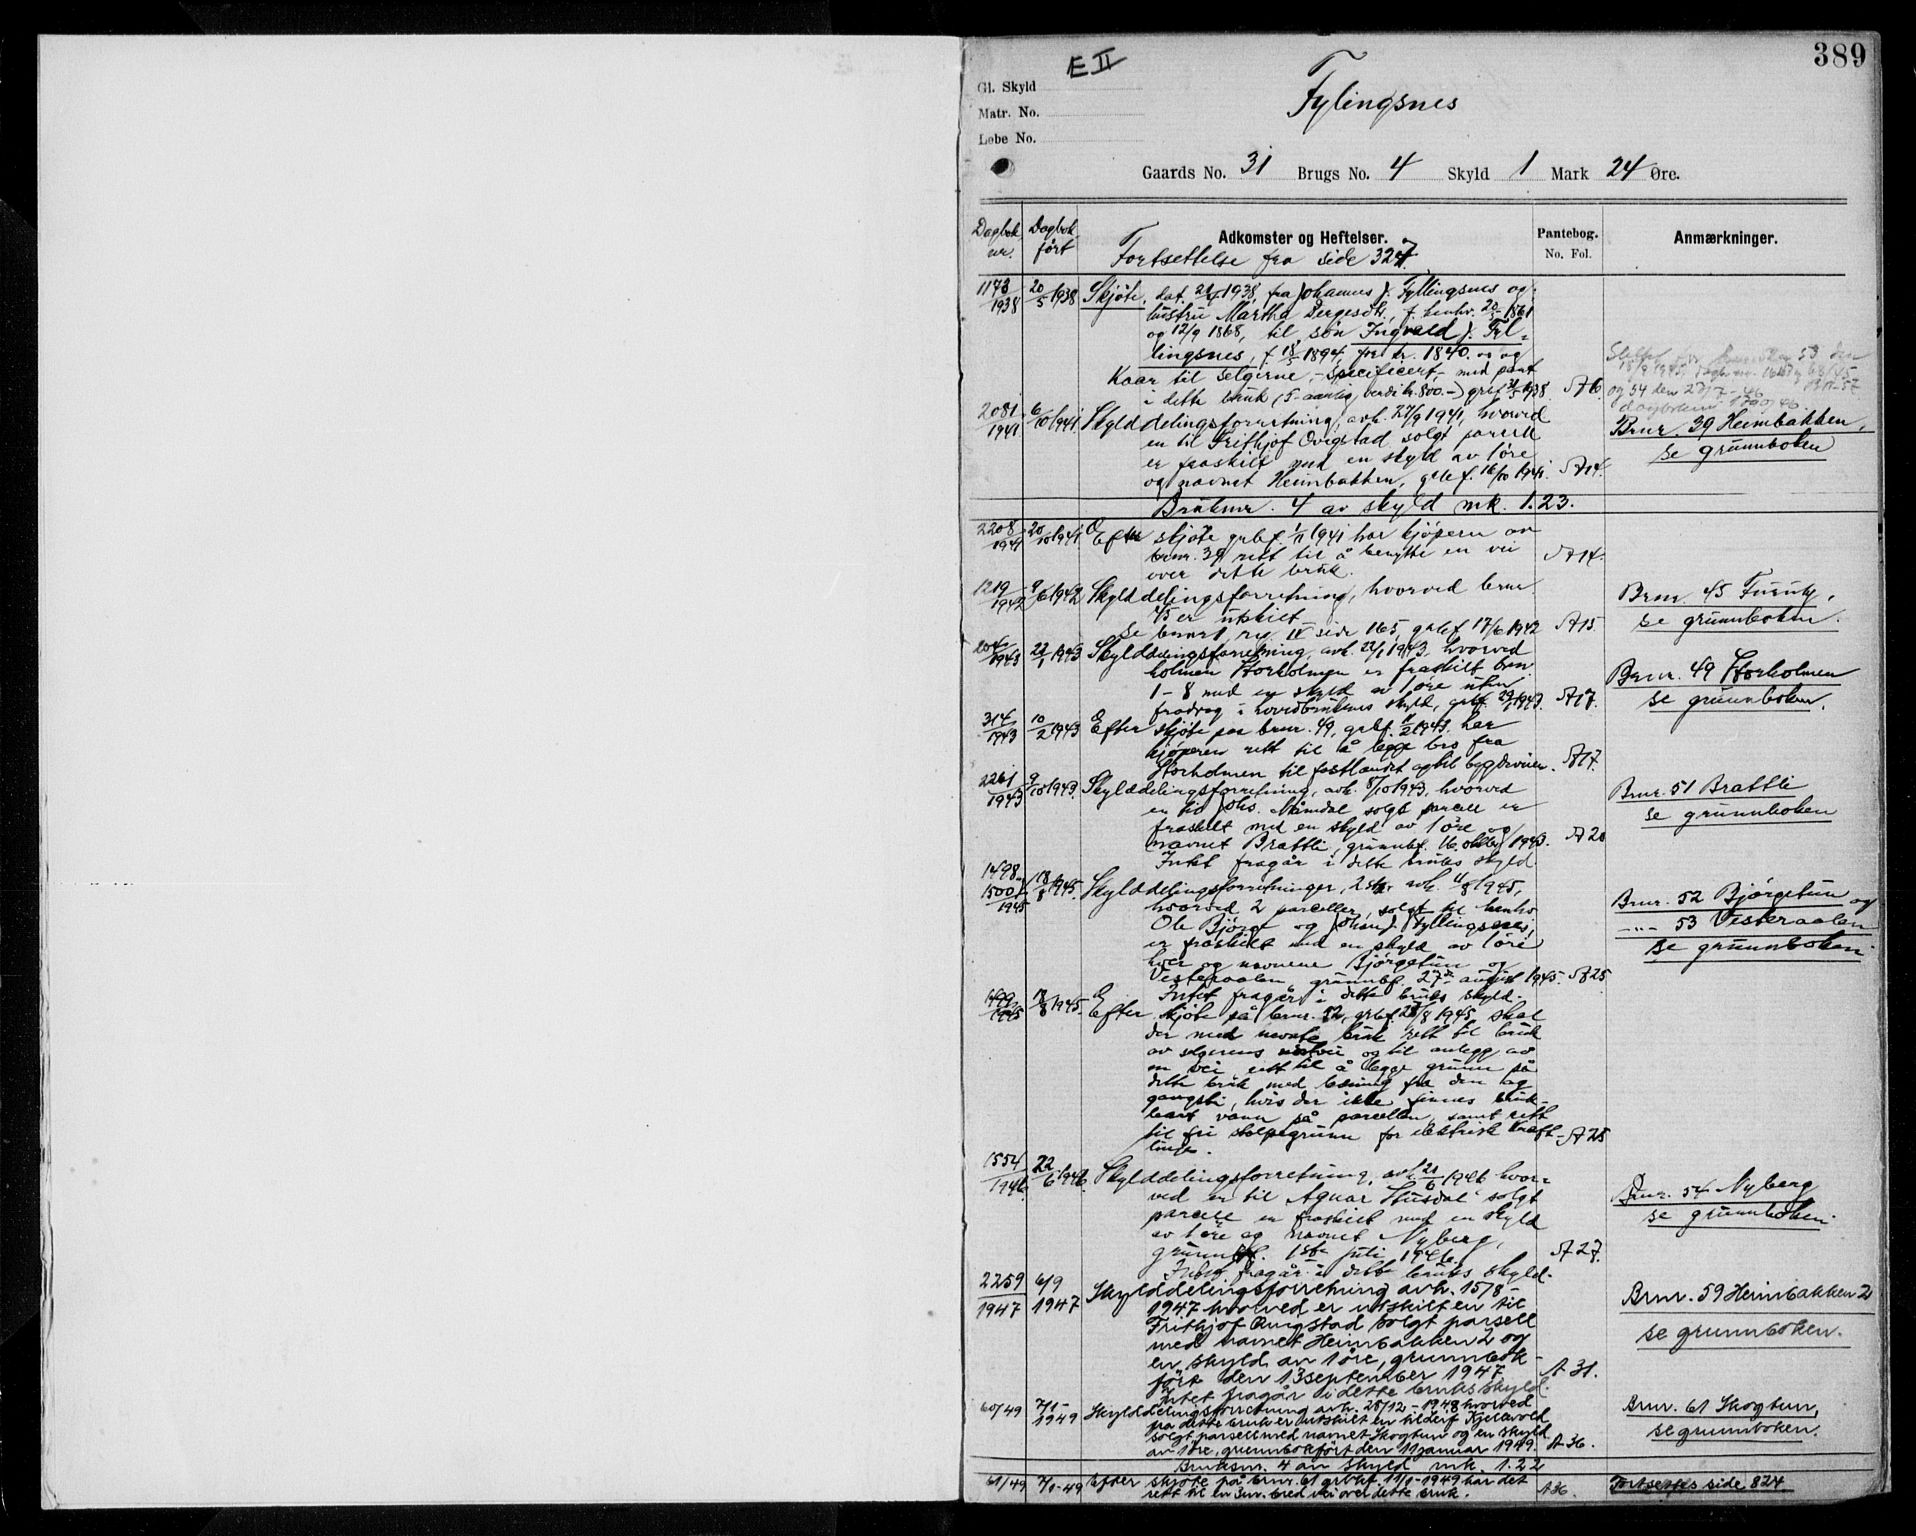 389
E II
Gl. Skyld
Matr. No.
Løbe No.
Fylingsnes
Gaards No. 31 Brugs No. 4 Skyld 1 Mark 24 Øre.
Dagbok nr. Dagbok ført Adkomster og Heftelser. Pantebog. No. Fol. Anmærkninger.
Fortsettelse fra side 327.
1173/1938 20/5 1938 Skjøte, dat. 1938, fra Johannes J. Fyllingsnes og
hustru Martha f. henhv. 1861
og 12/9 1868, til søn Ingvald J. Fyl-
lingsnes, f. 18/5 1894, for kr. 1840.00 og
Kaar til selgerne, - specificert, - med pant
i dette bruk (5-aarlig verdi kr. 800.-) grbf. 31/5 1938 A 6.
og 54 den 27/7-46
2081/1941 6/10 1941 Skylddelingsforretning, avh. 27/9 1941, hvorved
en til Frithjof solgt parcell
er fraskilt med en skyld av 1 øre
og navnet Heimbakken, grbf. 16/10 1941. A 14.
Brnr. 39 Heimbakken,
se grunnboken
Bruksnr. 4 av skyld mk. 1.23.
2208/1941 20/10 1941 Efter skjøte grbf. 1/11 1941 har kjøperen av
brnr. 39 rett til å benytte en vei
over dette bruk. A 14.
1219/1942 9/6 1942 Skylddelingsforretning, hvorved brnr.
45 er utskilt
se brnr 1, rg. IV side 165, grbf 17/6 1942 A 15.
Brnr. 45 Furuly,
se grunnboken.
204/1943 22/1 1943 Skylddelingsforretning, avh. 22/1 1943, hvorved
holmen Storholmen er fraskilt brnr.
1 - 8 med en skyld av 1 øre uten
fradrag i hovedbrukenes skyld, grbf. 29/1 1943. A 17.
Brnr. 49 Storholmen
se grunnboken.
314/1943 10/2 1943 Efter skjøte paa brnr. 49, grbf. 1943, har
kjøperen rett til å legge bro fra
Storholmen til fastlandet og til bygdeveien. A 17.
2261/1943 9/10 1943. Skylddelingsforretning, avh. 8/10 1943, hvorved
en til Johs. solgt parcell er
fraskilt med en skyld av 1 øre og
navnet Brattli, grunnbf. 16. oktbr 1943. A 20
Intet fragår i dette bruks skyld
Brnr. 51 Brattli
se grunnboken
1498-1500/1945 18/8 1945. Skylddelingsforretninger, 2 stk. avh. 4/8 1945,
hvorved 2 parceller, solgt til henhv.
Ole Bjørge og Johan J. Fyllingsnes,
er fraskilt med en skyld av 1 øre
hver og navnene Bjørgetun og
Vesteraalen, grunnbf. 27de august 1945. A 25
Intet fragår i dette bruks skyld.
Brnr. 52 Bjørgetun og
-"- 53 Vesteraalen
se grunnboken.
1499/1945 18/8 1945. Efter skjøte på brnr. 52, grbf. 27/8 1945 skal
der med nevnte bruk rett til bruk
av selgerens og til anlegg av
en vei, rett til å legge grunn på
dette bruk med ledning fra den og
gangsti, hvis der ikke finnes bruk-
bart vann på parcellen, samt rett
til fri stolpegrunn for elektrisk kraft- A 25
linje.
1554/1946 22/6 1946. Skylddelingsforretning, avh. 20/6 1946 hvor-
ved en til Agnar Husdal solgt
parcell er fraskilt med en skyld
av 1 øre og navnet Nyberg,
grunnbf. 1ste juli 1946. A 27.
Intet fragår i dette bruks skyld.
Brnr. 54 Nyberg
se grunnboken.
2259/1947 6/9 1947 Skylddelingsforretning avh. 15/8-
1947 hvorved er utskilt en til
Frithjof solgt parsell
med navnet Heimbakken 2 og
en skyld av 1 øre, grunnbok-
ført den 13 september 1947. A 31.
Intet fragår i dette bruks skyld.
Brnr. 59 Heimbakken 2
se grunnboken.
60/49 7/1-1949 Skylddelingsforretning avh. 28/12-1948 hvorved
fra dette bruk er utskilt en til Kjelavold
solgt parsell med navnet Skogtun og en skyld
av 1 øre, grunnbokført den 11 januar 1949. A 36.
Brnr. 61 Skogtun,
se grunnboken.
Bruksnr. 4 av skyld mk. 1.22
61/49 7/1-49 Efter skjøte på brnr. 61 grbkf. 11/1-1949 har det
rett til en 3 m. bred vei over dette bruk. A 36.
Fortsettes side 824